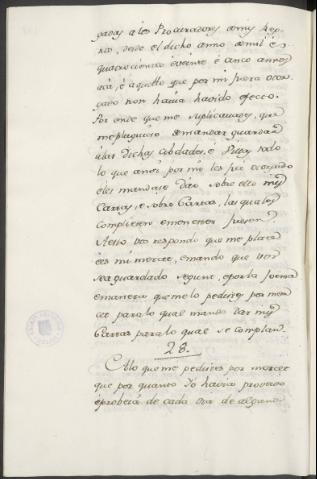 gadas á los Procuradores de mis Rey-
nos, desde el dicho anno de mil é
quatrocientos é veinte é cinco annos
acá, é aquello que por mi fuera otor-
gado non havia havido efecto.
Por ende que me suplicavades, que
me plaguiese de mandar guardar
á las dichas cibdades, é Villas todo
lo que ansi por mi les fué otorgado
é les mandase dár sobre ello mis
Cartas, é sobre Cartas, las quales
complieren é menester fuesen.
A esto vos respondo que me place
é es mi mercet, é mando que vos
sea guardado segunt, é por la forma
é manera que me lo pedides por mer-
cet para lo qual mando dar mis
Cartas para lo qual se complan.
28.
A lo que me pedistes por mercet
que por quanto Yo havia proveido
é proveía de cada dia de algunos